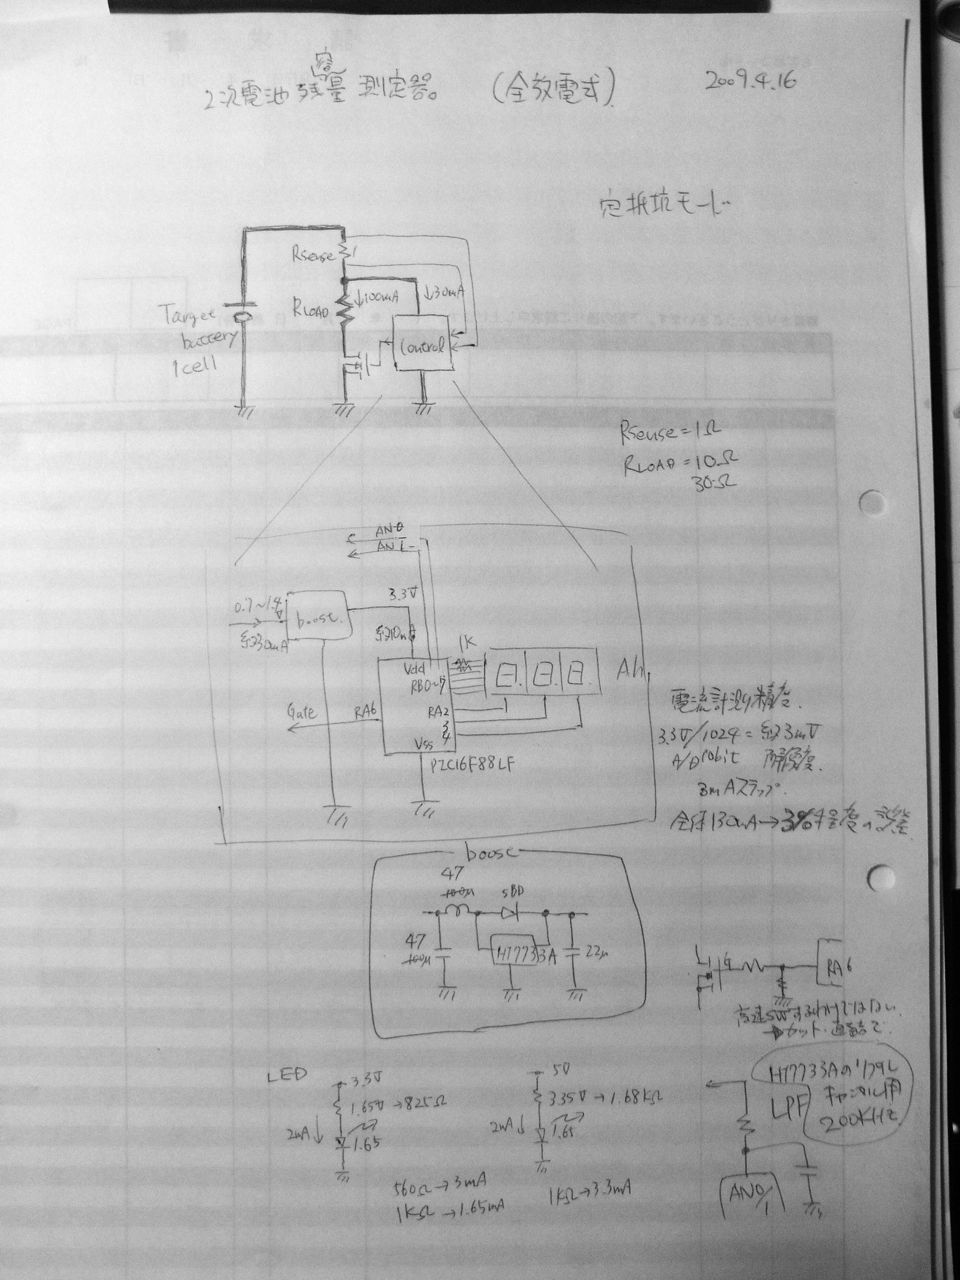 容
2次電池 残量 測定器。 (全放電式) 2009.4.16
定抵抗モード
Rsense 1
RLOAD ↓100mA ↓30mA
Target
battery
1cell
Control
Rsense = 1Ω
RLOAD = 10Ω
30Ω
AN0
AN1
0.7~1.4V
約30mA
boost
3.3V
約10mA
1K
Vdd
RB0~7
Ah
Gate
RA6
RA2
3
4
Vss
PIC16F88LF
電流計測精度
3.3V/1024 = 約3mV
A/D 10bit 解像度
3mAステップ
全体130mA→3%程度の誤差
boost
47
100μ
SBD
47
100μ
HT7733A
22μ
G
RA6
高速SWするわけではない
→カット・直結で
LED
3.3V
1.65V→825Ω
2mA↓ 1.65
560Ω→3mA
1KΩ→1.65mA
5V
3.35V→1.68KΩ
2mA↓ 1.65
1KΩ→3.3mA
HT7733Aのリップル
キャンセル用
200KHz
LPF
AN0/1